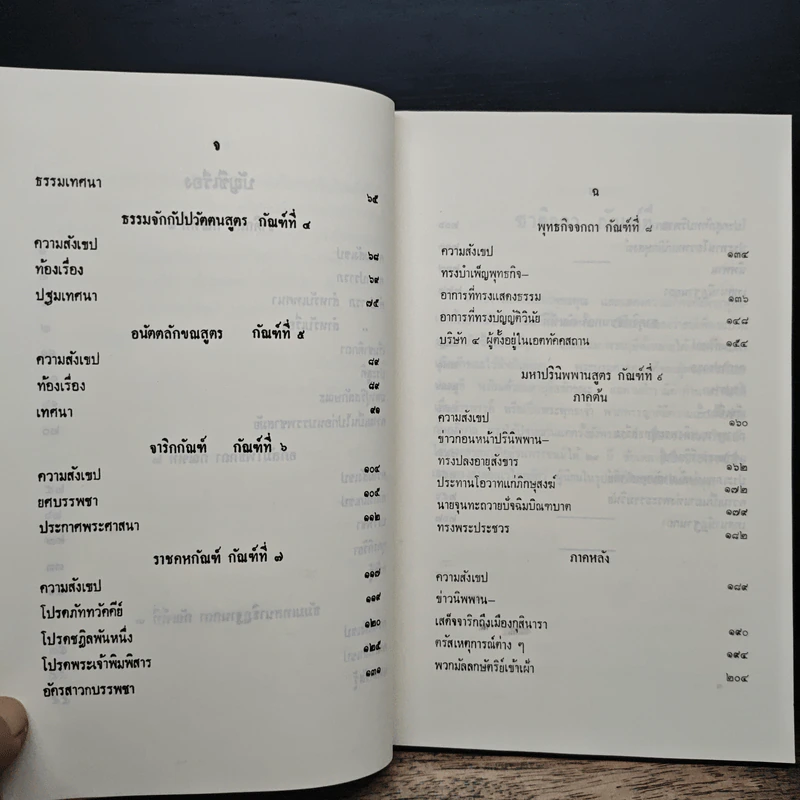 จ
ธรรมเทศนา ๖๕
ธรรมจักกัปปวัตตนสูตร กัณฑ์ที่ ๔
ความสังเขป ๖๘
ท้องเรื่อง ๖๙
ปฐมเทศนา ๗๕
อนัตตลักขณสูตร กัณฑ์ที่ ๕
ความสังเขป ๘๙
ท้องเรื่อง ๘๙
เทศนา ๙๑
จาริกกัณฑ์ กัณฑ์ที่ ๖
ความสังเขป ๑๐๔
ยศบรรพชา ๑๐๕
ประกาศพระศาสนา ๑๑๒
ราชคหกัณฑ์ กัณฑ์ที่ ๗
ความสังเขป ๑๑๗
โปรดภัททวัคคีย์ ๑๑๙
โปรดชฎิลพันหนึ่ง ๑๒๐
โปรดพระเจ้าพิมพิสาร ๑๒๕
อัครสาวกบรรพชา ๑๓๑
ฉ
พุทธกิจจกถา กัณฑ์ที่ ๘
ความสังเขป ๑๓๔
ทรงบำเพ็ญพุทธกิจ–
อาการที่ทรงแสดงธรรม ๑๓๖
อาการที่ทรงบัญญัติวินัย ๑๔๘
บริษัท ๔ ผู้ตั้งอยู่ในเอตทัคคสถาน ๑๕๔
มหาปรินิพพานสูตร กัณฑ์ที่ ๙
ภาคต้น
ความสังเขป ๑๖๐
ข่าวก่อนหน้าปรินิพพาน–
ทรงปลงอายุสังขาร ๑๖๒
ประทานโอวาทแก่ภิกษุสงฆ์ ๑๗๒
นายจุนทะถวายปัจฉิมบิณฑบาต ๑๗๙
ทรงพระประชวร ๑๘๒
ภาคหลัง
ความสังเขป ๑๘๙
ข่าวนิพพาน–
เสด็จจาริกถึงเมืองกุสินารา ๑๙๐
ตรัสเหตุการณ์ต่าง ๆ ๑๙๔
พวกมัลลกษัตริย์เข้าเฝ้า ๒๐๔